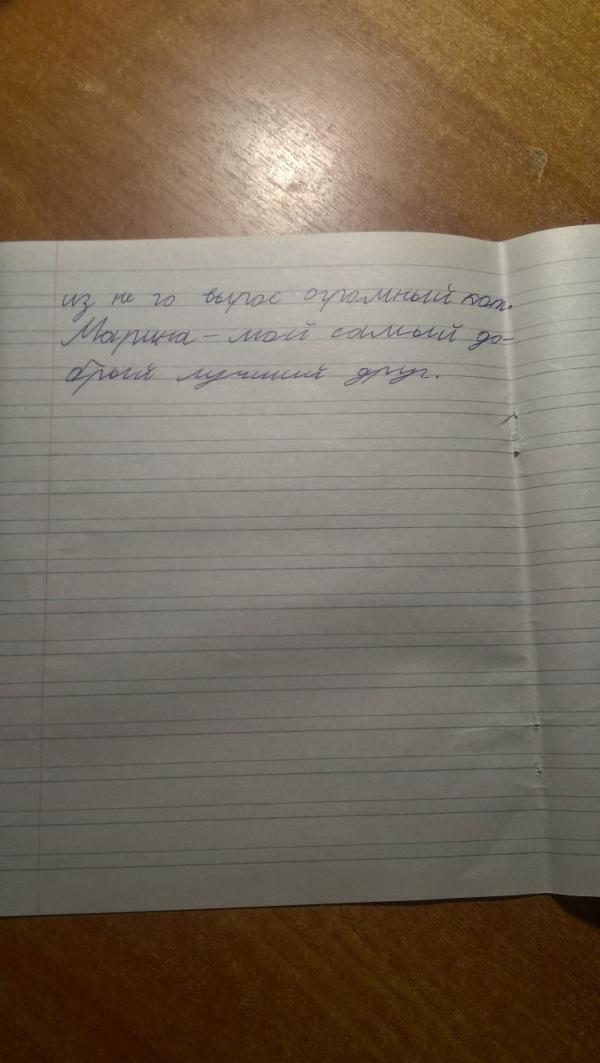 из не го вырос огромный кот.
Марина - мой самый до-
брый лучший друг.